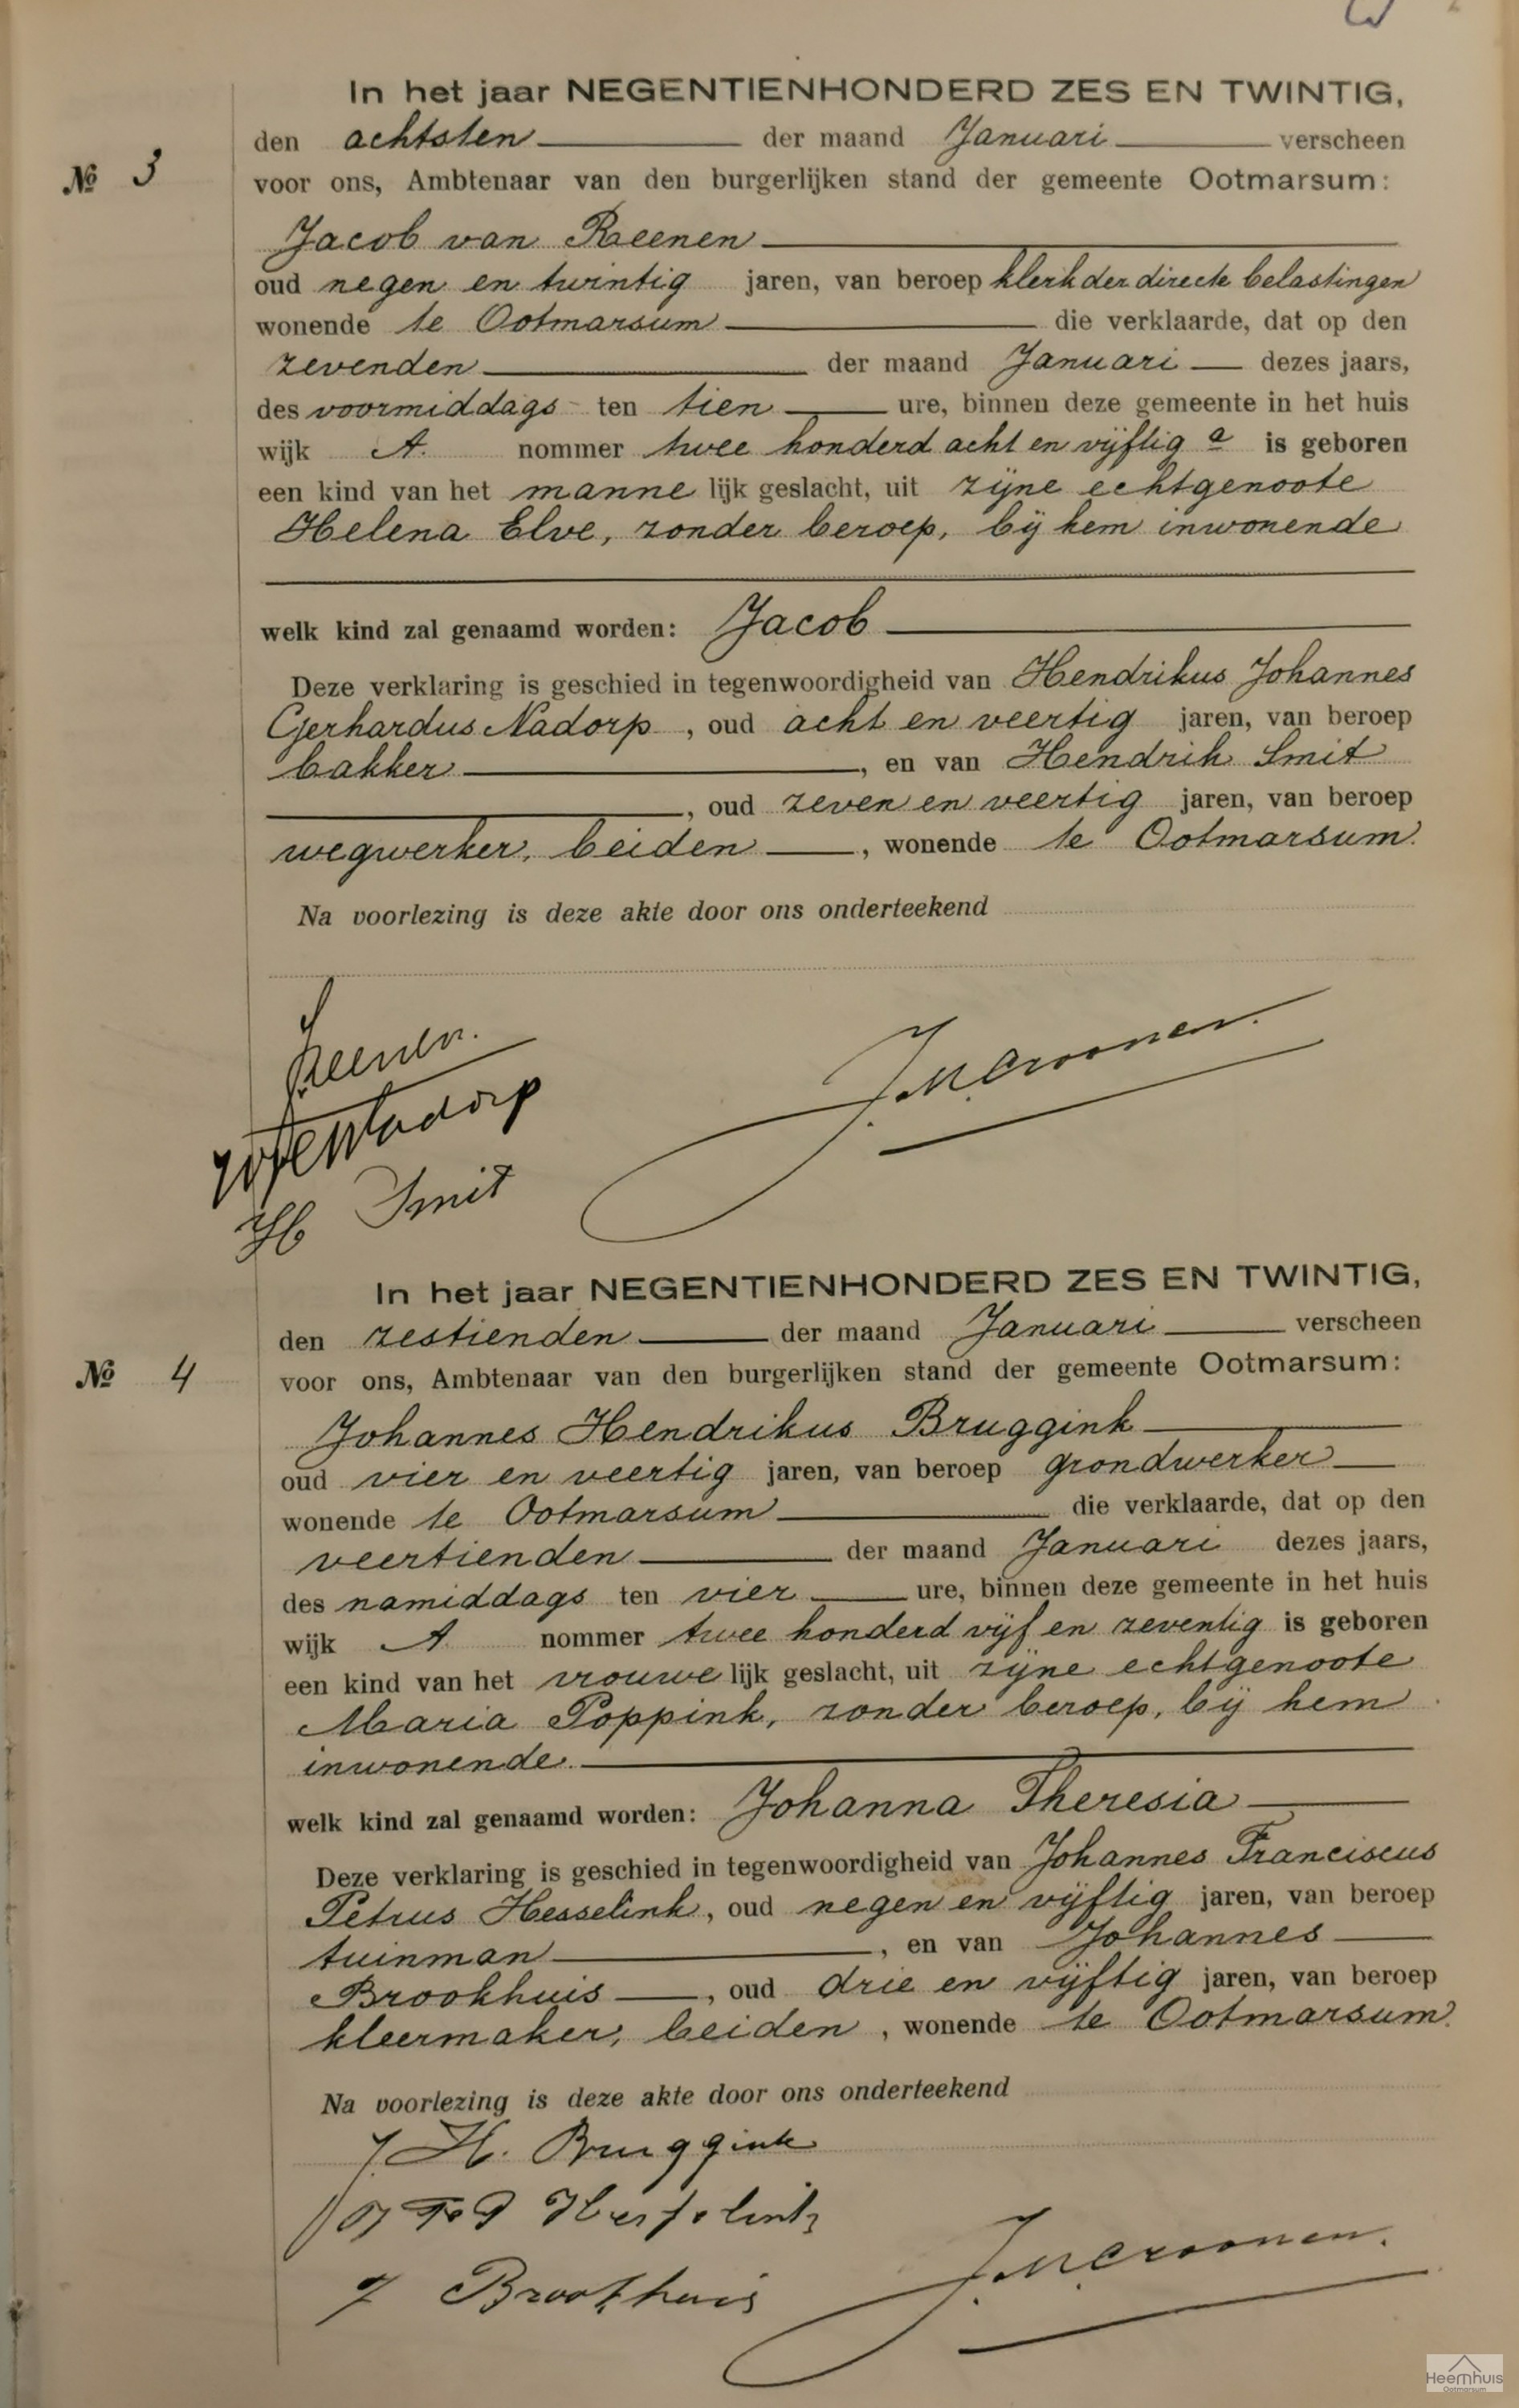 In het jaar NEGENTIENHONDERD ZES EN TWINTIG,
den achtsten der maand Januari verscheen
№ 3
voor ons, Ambtenaar van den burgerlijken stand der gemeente Ootmarsum:
Jacob van Reenen
oud negen en twintig jaren, van beroep klerk der directe belastingen
wonende te Ootmarsum die verklaarde, dat op den
zevenden der maand Januari dezes jaars,
des voormiddags ten tien ure, binnen deze gemeente in het huis
wijk A. nommer twee honderd acht en vijftig a is geboren
een kind van het mannelijk geslacht, uit zijne echtgenoote
Helena Elve, zonder beroep, bij hem inwonende
welk kind zal genaamd worden: Jacob
Deze verklaring is geschied in tegenwoordigheid van Hendrikus Johannes
Gerhardus Nadorp, oud acht en veertig jaren, van beroep
bakker, en van Hendrik Smit
, oud zeven en veertig jaren, van beroep
wegwerker, beiden, wonende te Ootmarsum.
Na voorlezing is deze akte door ons onderteekend
Reenen.
Nadorp
H Smit
In het jaar NEGENTIENHONDERD ZES EN TWINTIG,
den zestienden der maand Januari verscheen
№ 4
voor ons, Ambtenaar van den burgerlijken stand der gemeente Ootmarsum:
Johannes Hendrikus Bruggink
oud vier en veertig jaren, van beroep grondwerker
wonende te Ootmarsum die verklaarde, dat op den
veertienden der maand Januari dezes jaars,
des namiddags ten vier ure, binnen deze gemeente in het huis
wijk A nommer twee honderd vijf en zeventig is geboren
een kind van het vrouwelijk geslacht, uit zijne echtgenoote
Maria Poppink, zonder beroep, bij hem
inwonende.
welk kind zal genaamd worden: Johanna Theresia
Deze verklaring is geschied in tegenwoordigheid van Johannes Franciscus
Petrus Hesselink, oud negen en vijftig jaren, van beroep
tuinman, en van Johannes
Brookhuis, oud drie en vijftig jaren, van beroep
kleermaker, beiden, wonende te Ootmarsum.
Na voorlezing is deze akte door ons onderteekend
J. H. Bruggink
J Brookhuis
Heemhuis
Ootmarsum